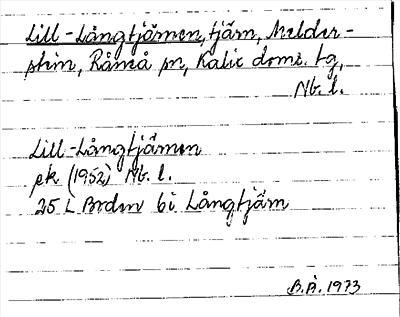 Lill-Långtjärnen, tjärn, Melder-
stein, Råneå sn, Kalix doms. tg,
Nb. l.
Lill-Långtjärnen
ek (1952) Nb. l.
25 L Boden 6i Långtjärn
B.Å. 1973